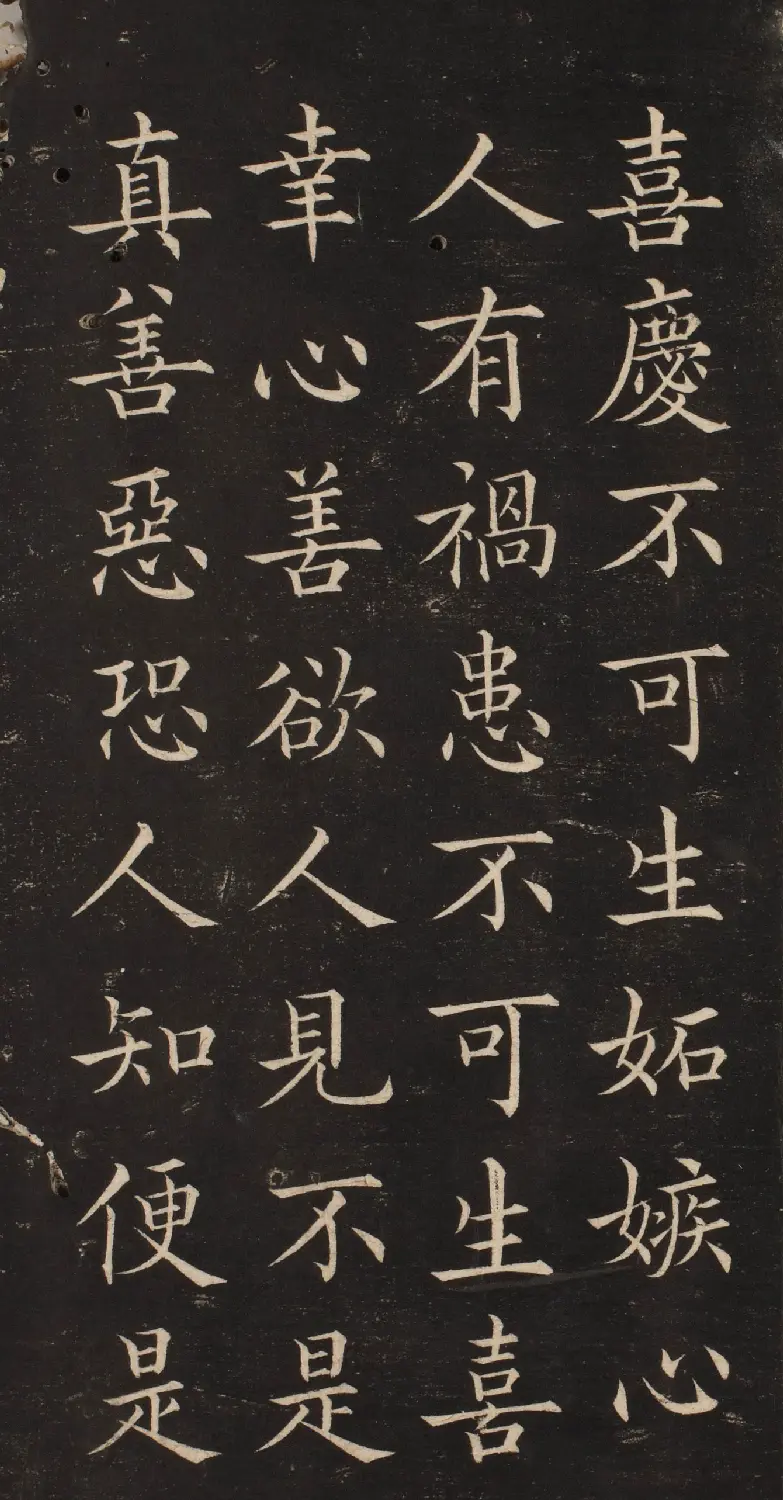 喜慶不可生妬嫉心
人有禍患不可生喜
幸心善欲人見不是
真善惡恐人知便是